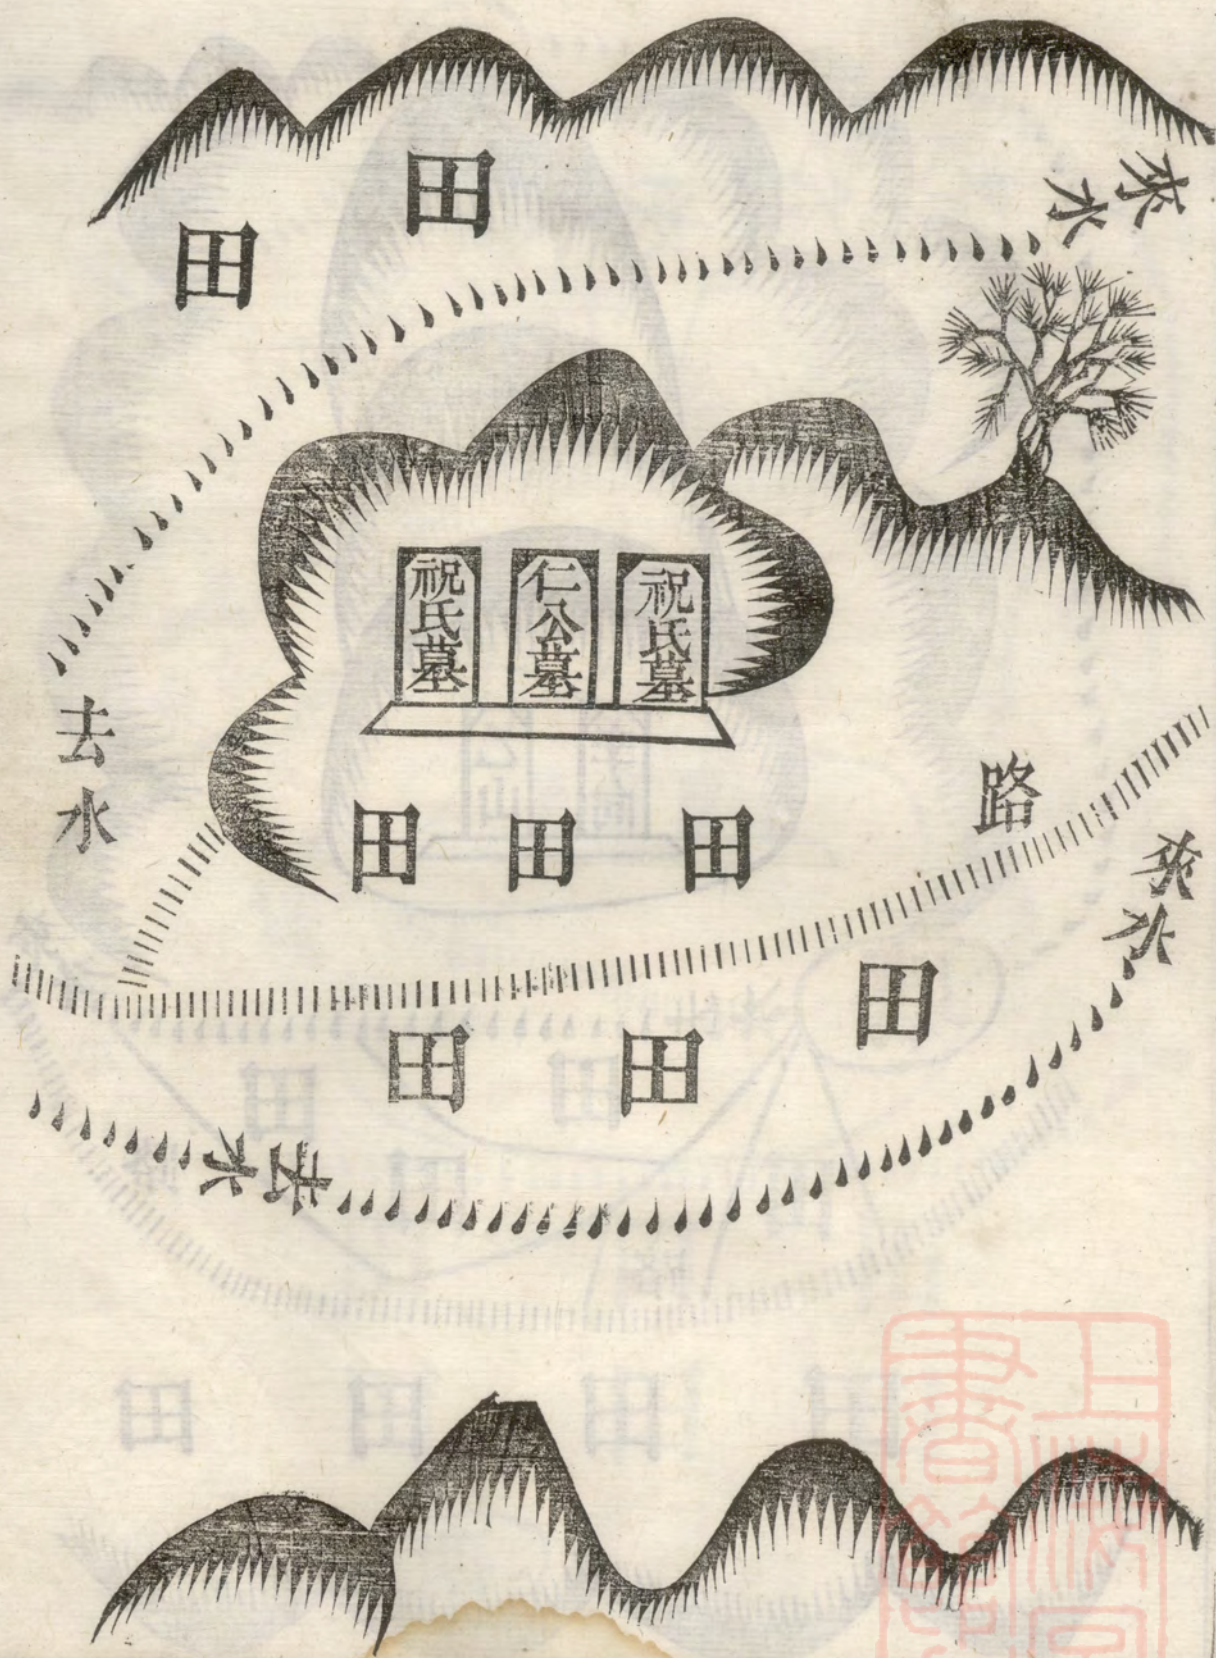 來水
田
田
祝氏墓
仁公墓
祝氏墓
去水
田
田
田
路
來水
田
田
田
去水